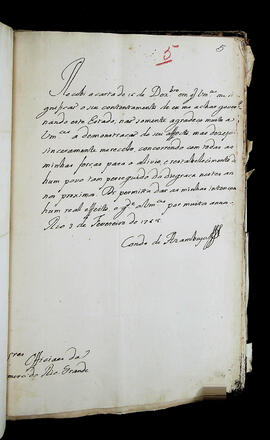 5
5
Recebi a carta de 15 de Dez.bro em q̃ V.mces me si
gnificão o seu contentamento de eu me achar gover
nando este Estado, não somente agradeço muito a
V.mces a demonstração do seu affecto mas dezejo
sinceramente merecello, concorrendo com todas as
minhas forças para o alivio, e restabelecimento de
hum povo tam perseguido da disgraça nestes an
nos proximos. Ds permita dar as minhas intençoens
hum real effeito e g.de a V.mces por muitos annos.
Rio 3 de Fevereiro de 1768
Conde de Azambuja
Officiaes da
mara do Rio Grande